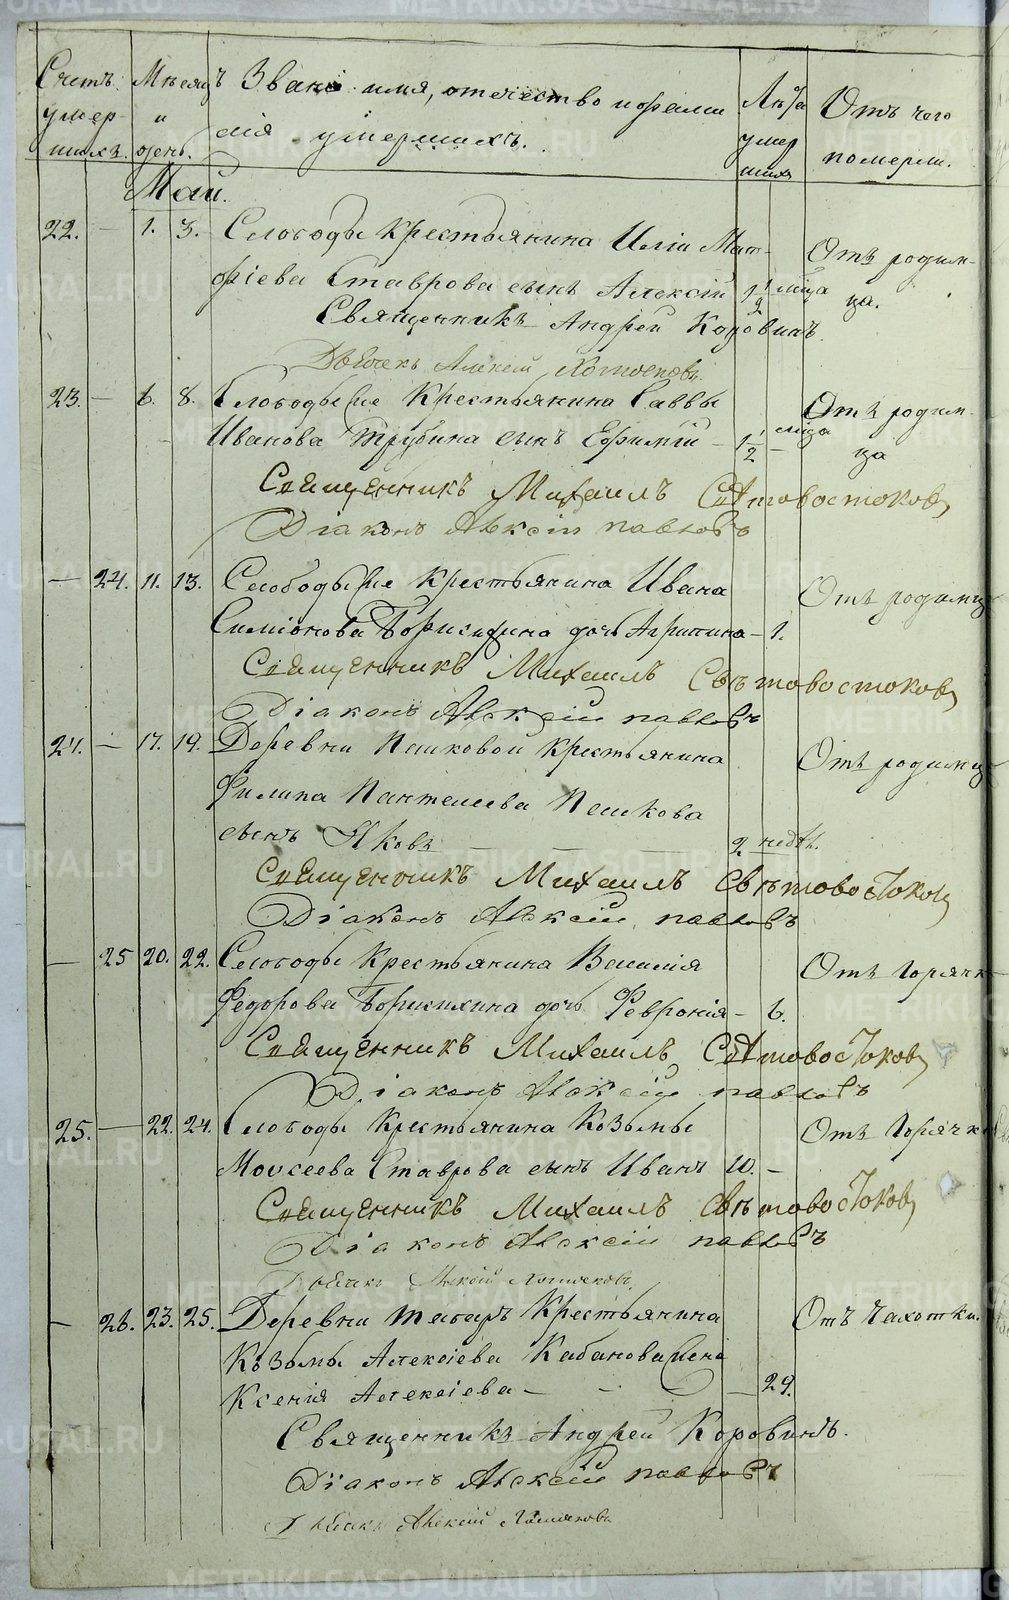 Счетъ умер-шихъ.
Мѣсяцъ и день.
Званіе имя, отечество и фамилія умершихъ.
Лѣта умершихъ
Отъ чего померли.
Май.
22. — 1. 3. Слободы Крестьянина Иліи Мат-
фіева Ставрова сынъ Алексѣй 1 1/2 мѣсяца
Отъ родим-
ца.
Священникъ Андрей Коровинъ.
Дьячекъ Алексій
23. — 6. 8. Слободы Крестьянина Саввы
Иванова Трубина сынъ Ефимій — 1 1/2 мѣсяца
Отъ родим-
ца
Священникъ Михаилъ Свѣтовостоковъ
Діаконъ Алексій Павловъ
— 24. 11. 13. Слободы Крестьянина Ивана
Симіонова Борисихина дочь Агрипина — 1.
Отъ родимца
Священникъ Михаилъ Свѣтовостоковъ
Діаконъ Алексій Павловъ
24. — 17. 19. Деревни Пешковой Крестьянина
Филипа Пантелеева Пешкова
сынъ Яковъ — 2 недѣ.
Отъ родимца
Священникъ Михаилъ Свѣтовостоковъ
Діаконъ Алексій Павловъ
— 25 20. 22. Слободы Крестьянина Василія
Федорова Борисихина дочь Февронія — 6.
Отъ Горячки
Священникъ Михаилъ Свѣтовостоковъ
Діаконъ Алексій Павловъ
25. — 22. 24. Слободы Крестьянина Козьмы
Моисеева Ставрова сынъ Иванъ 10. —
Отъ Горячки
Священникъ Михаилъ Свѣтовостоковъ
Діаконъ Алексій Павловъ
Дьячекъ Алексій
— 26. 23. 25. Деревни Крестьянина
Козьмы Алексіева Кабанова жена
Ксенія Алексіева — 29.
Отъ Чахотки.
Священникъ Андрей Коровинъ.
Діаконъ Алексій Павловъ
Дьячекъ Алексій
METRIKI.GASO-URAL.RU